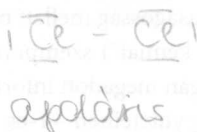 | C̅l̲ – C̅l̲ |
apoláris